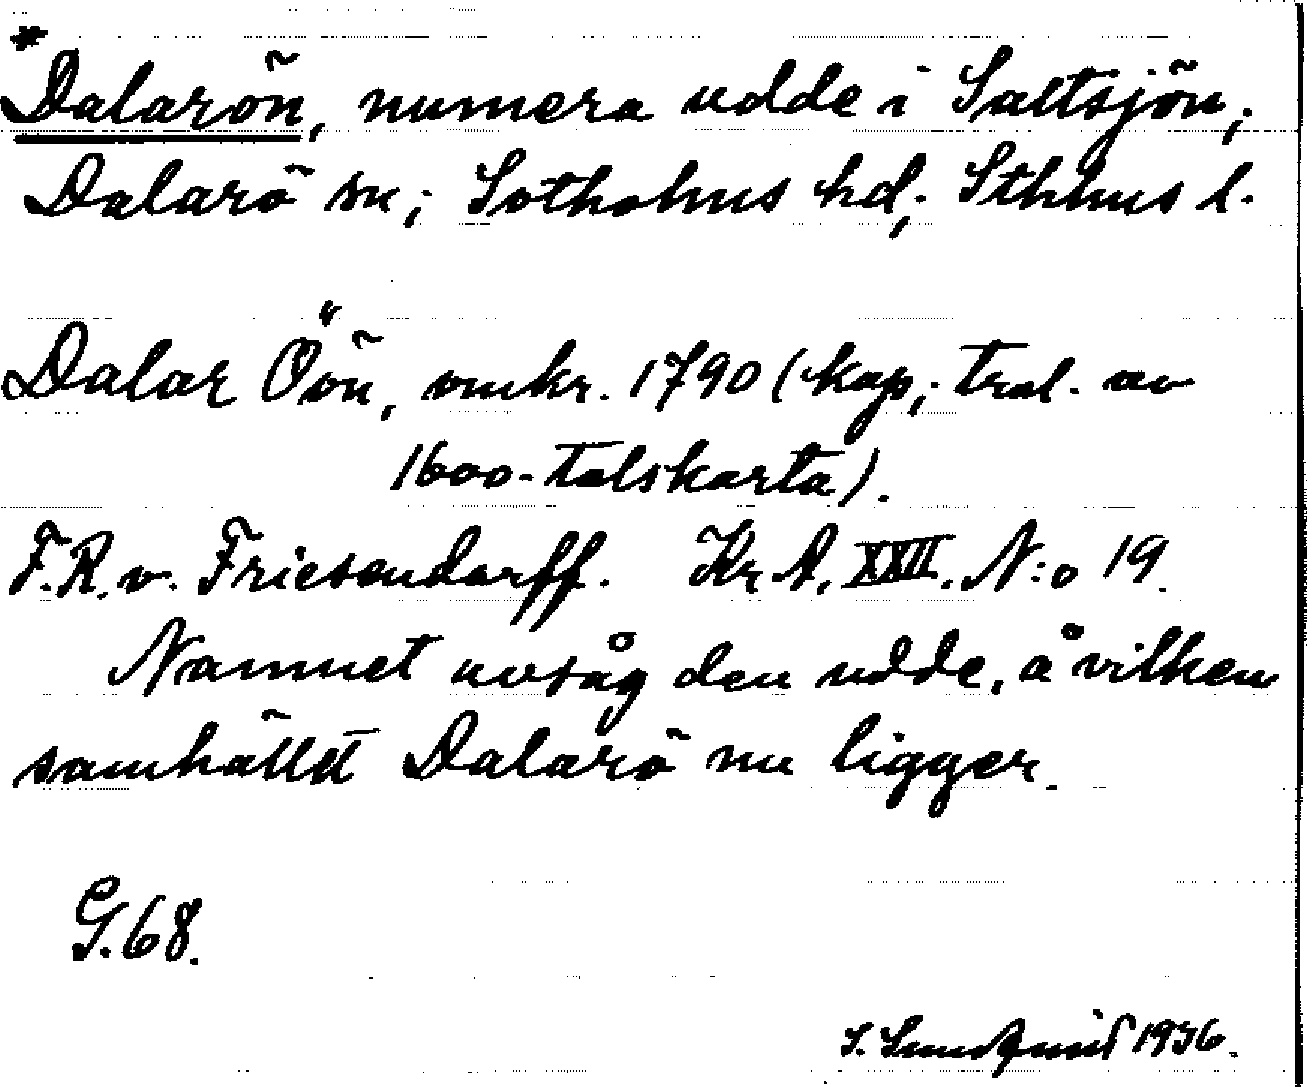 *Dalarön, numera udde i Saltsjön,
Dalarö sn; Sotholms hd; Sthlms l.
Dalar Öön, omkr. 1790 (kop; trol. av
1600-talskarta).
F.R. v. Friesendorff. Kr. A. XXII. N:o 19.
Namnet avsåg den udde, å vilken
samhället Dalarö nu ligger.
G.68.
S. Lundqvist 1936.